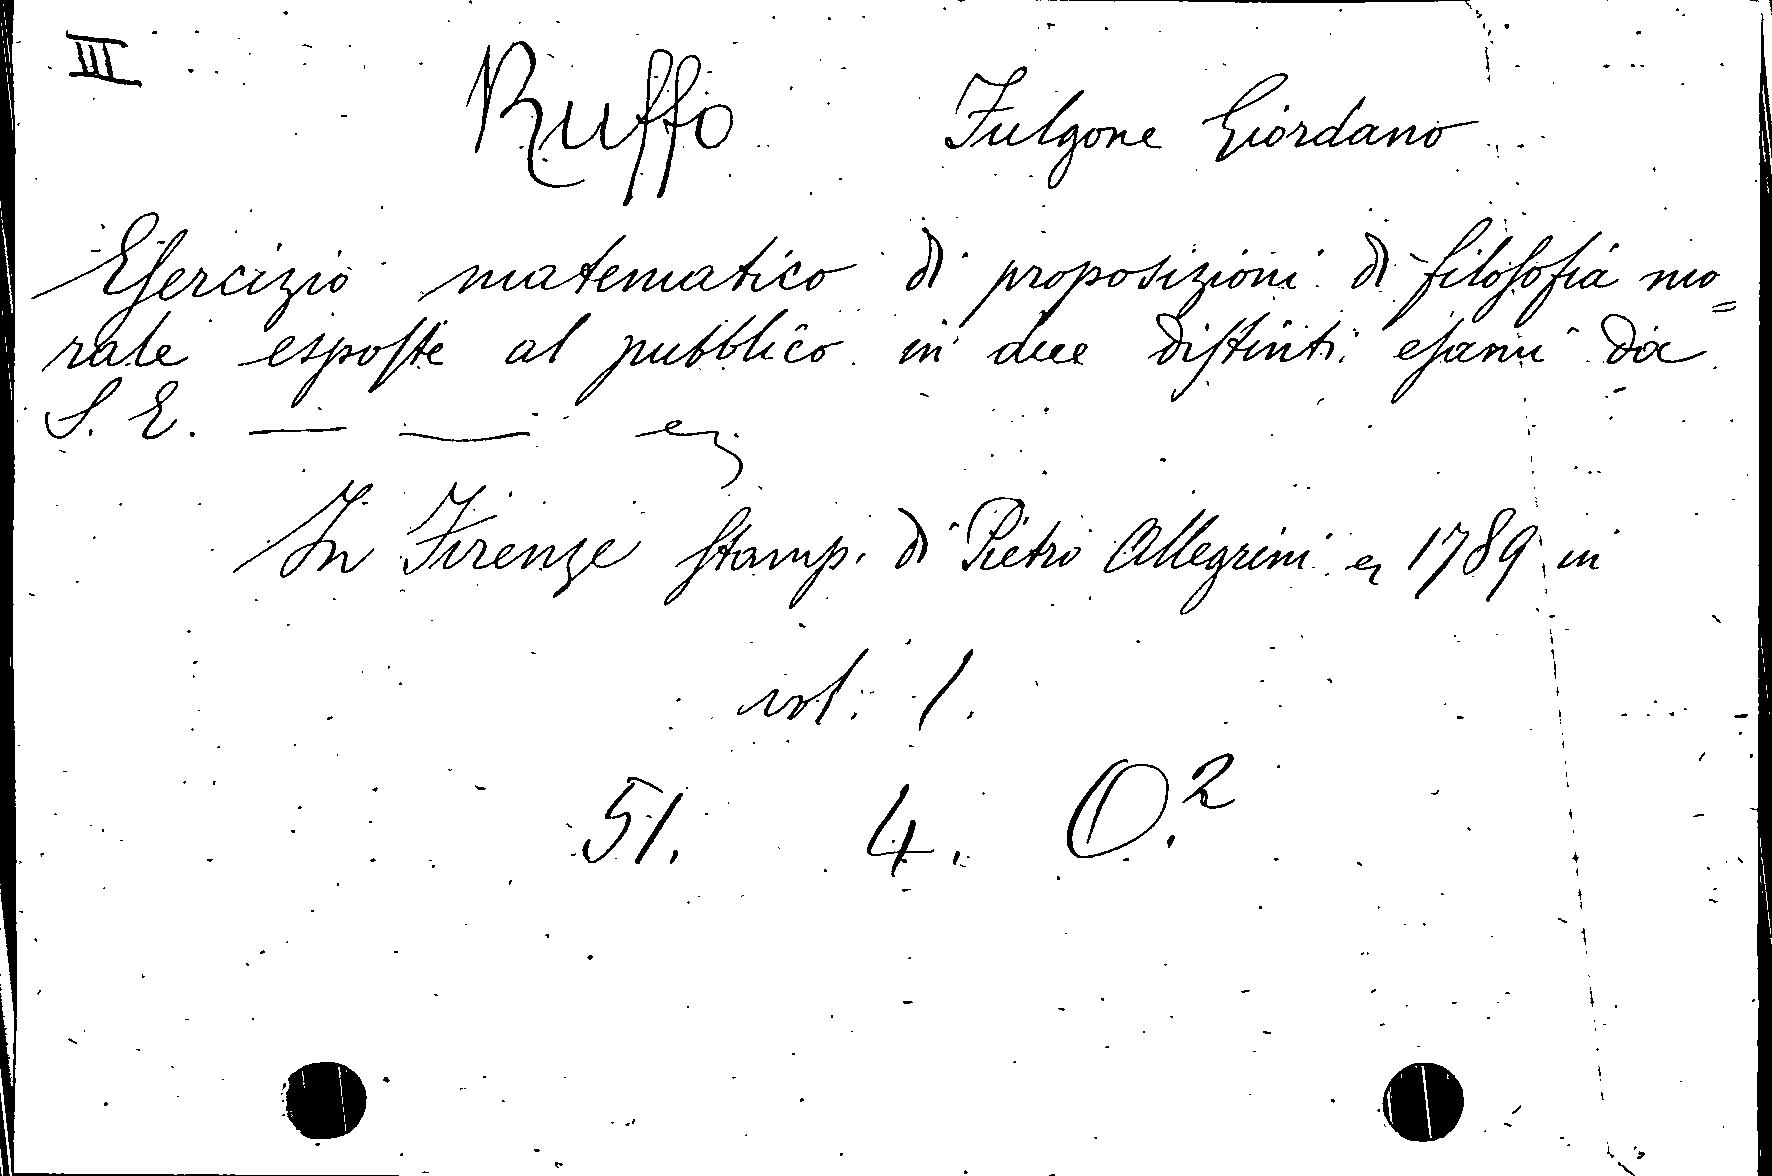 III
Ruffo Fulgone Giordano
Esercizio matematico di proposizioni di filosofia mo=
rale esposte al pubblico in due distinti esami da
S. E. — — ec
In Firenze Stamp. di Pietro Allegrini ec 1789 in
vol. 1.
51. 4. O.²